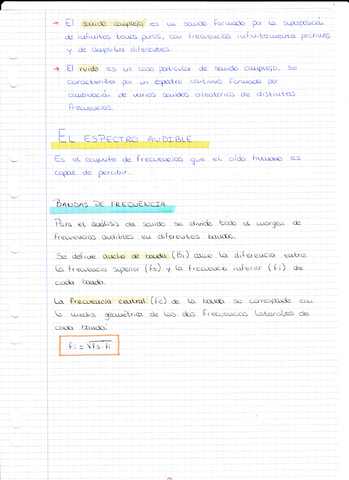 → El sonido complejo es un sonido formado por la superposición
de infinitos tonos puros, con frecuencias infinitamente próximas
y de amplitud diferentes.
→ El ruido es un caso particular de sonido complejo, se
caracteriza por un espectro continuo formado por
combinación de varios sonidos aleatorios de distintas
frecuencias.
EL ESPECTRO AUDIBLE
Es el conjunto de frecuencias que el oído humano es
capaz de percibir.
BANDAS DE FRECUENCIA
Para el análisis del sonido se divide todo el margen de
frecuencias audibles en diferentes bandas.
Se define ancho de banda (Bi) como la diferencia entre
la frecuencia superior (fs) y la frecuencia inferior (fi) de
cada banda.
La frecuencia central (fc) de la banda se corresponde con
la media geométrica de las dos frecuencias laterales de
cada banda:
fi = √fs·fi